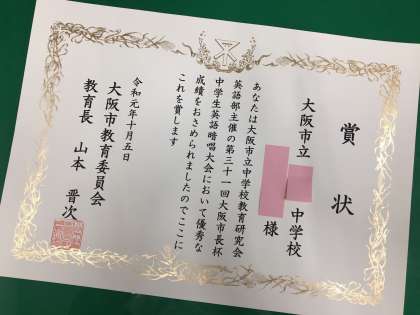 賞状
大阪市立 中学校
様
あなたは大阪市立中学校教育研究会
英語部主催の第三十一回大阪市長杯
中学生英語暗唱大会において優秀な
成績をおさめられましたのでここに
これを賞します
令和元年十月五日
大阪市教育委員会
教育長 山本 晋次